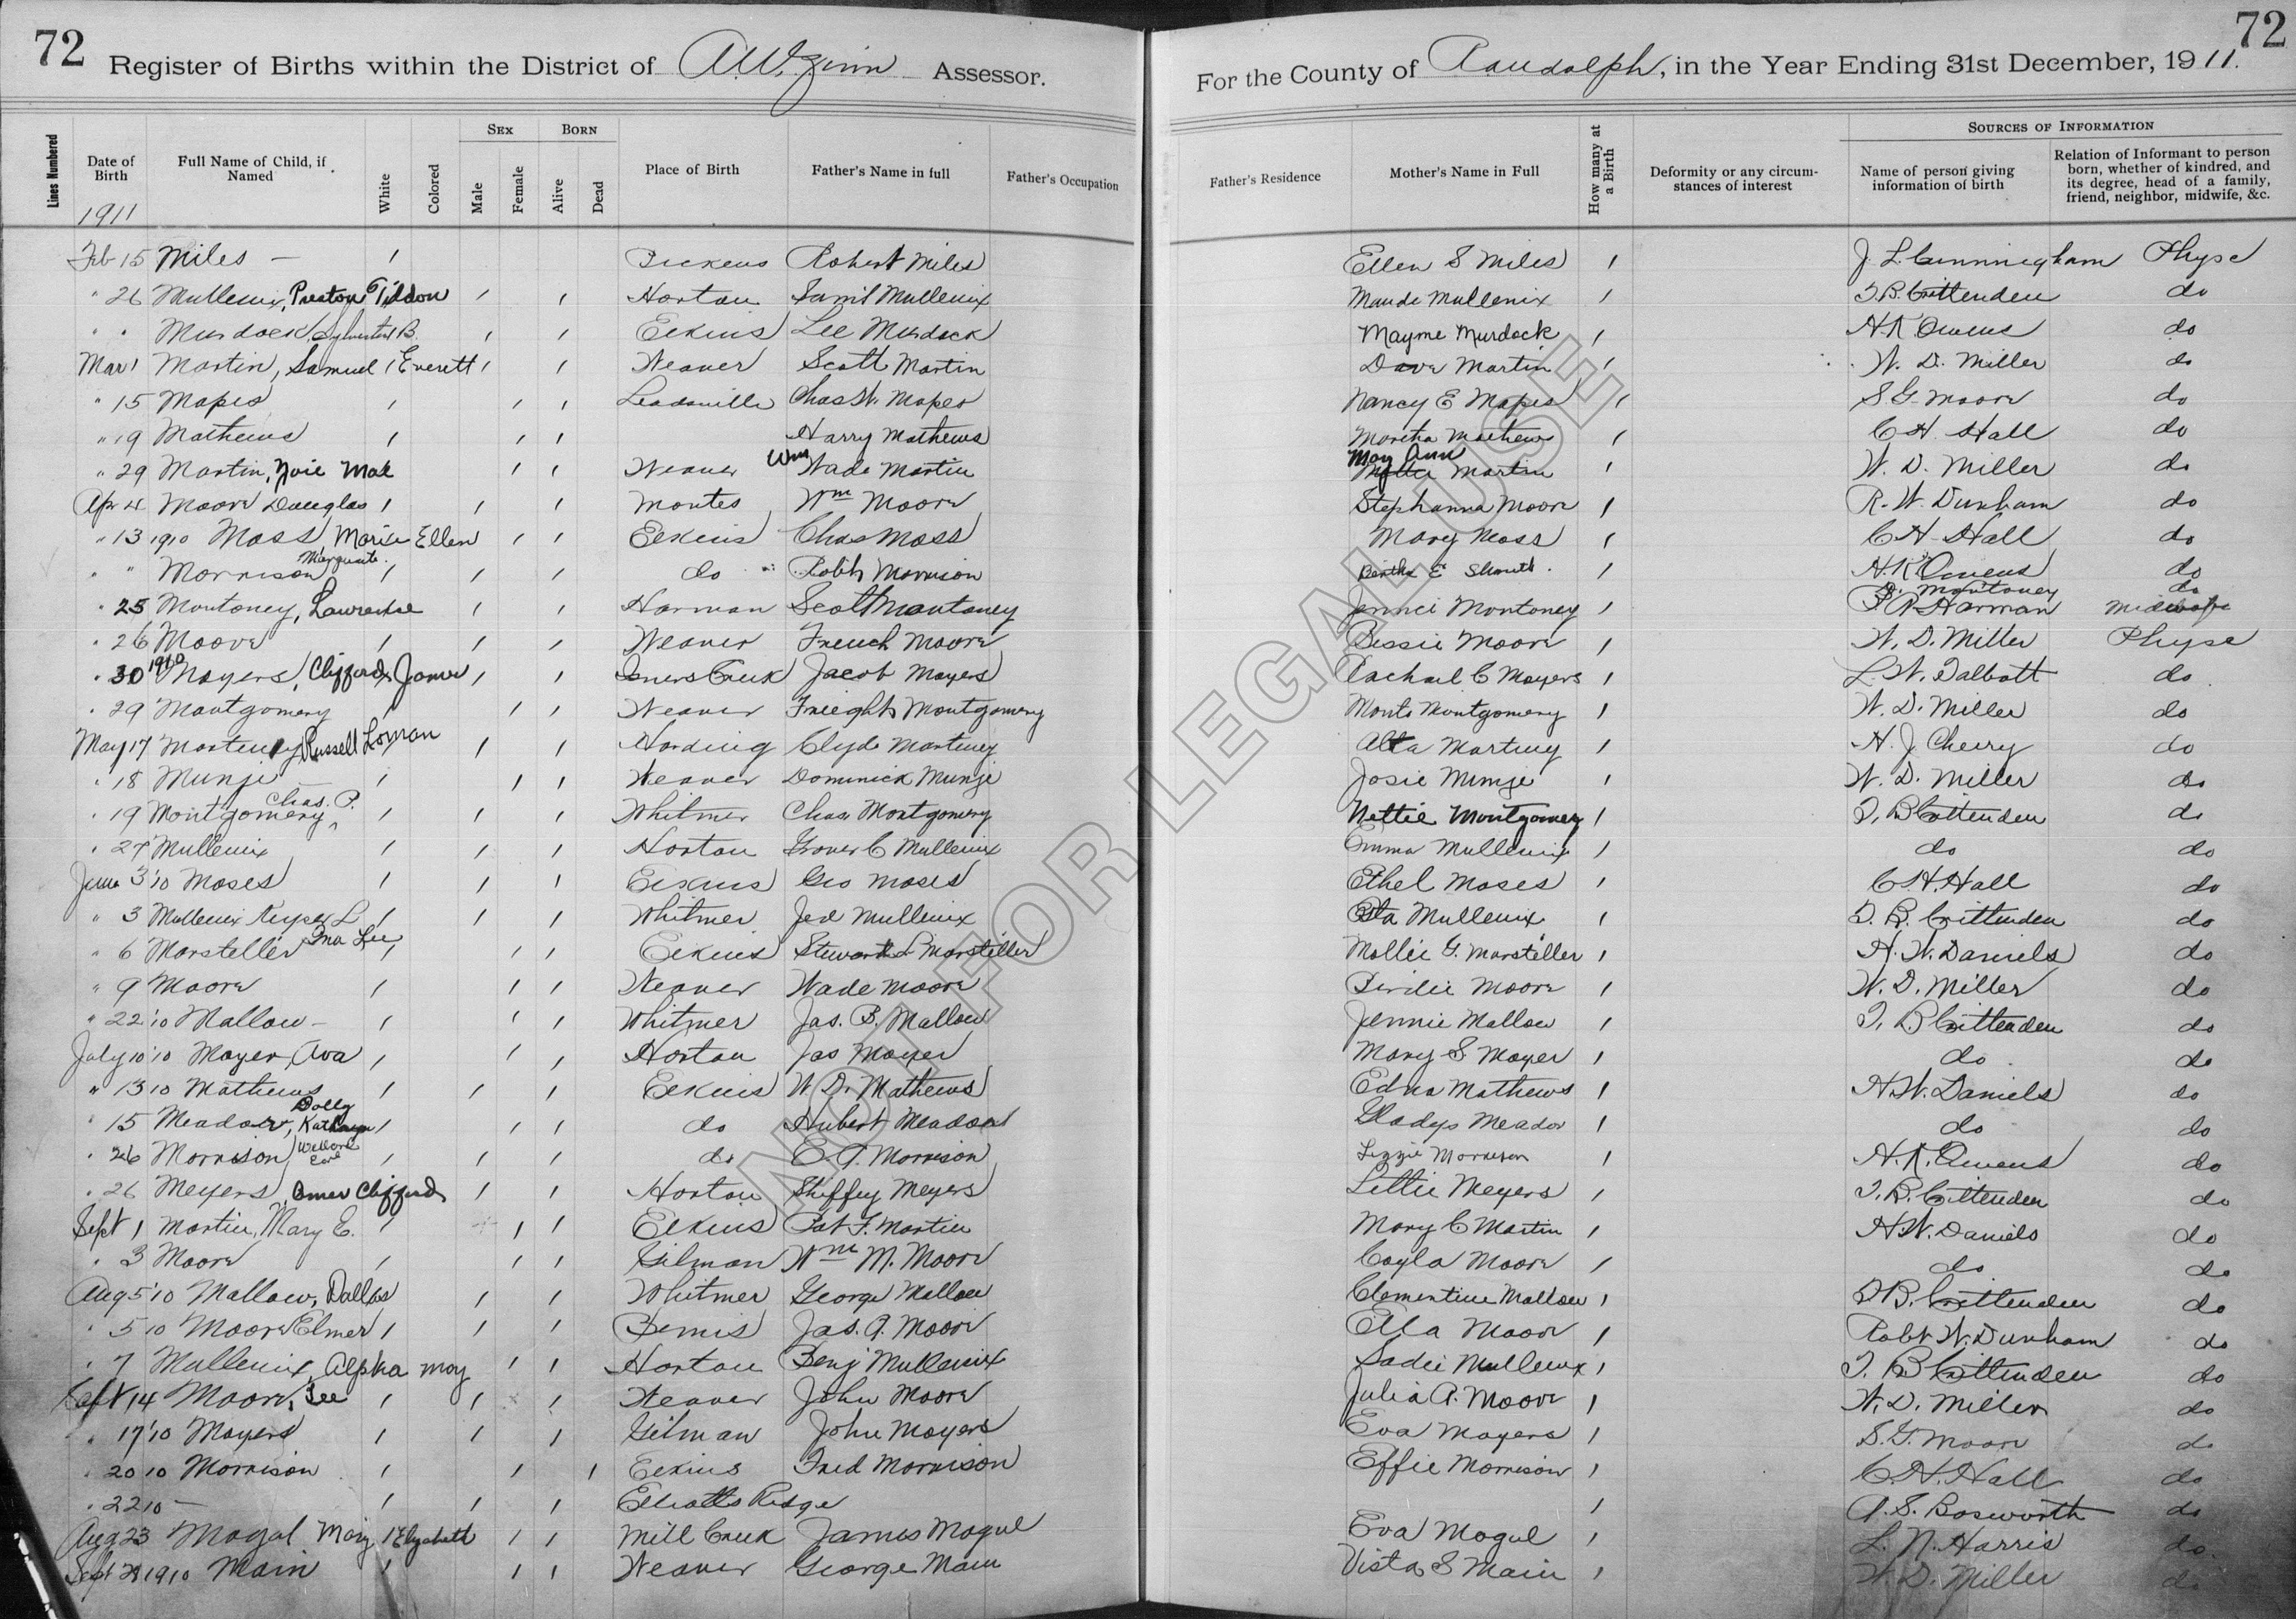 72
Register of Births within the District of A.W. Zinn Assessor.
72
For the County of Randolph, in the Year Ending 31st December, 1911.
Lines Numbered Date of Birth Full Name of Child, if Named White Colored Sex Male Female Born Alive Dead Place of Birth Father's Name in full Father's Occupation
Father's Residence Mother's Name in Full How many at a Birth Deformity or any circumstances of interest Sources of Information Name of person giving information of birth Relation of Informant to person born, whether of kindred, and its degree, head of a family, friend, neighbor, midwife, &c.
1911
Feb 15 Miles — 1 Pickens Robert Miles Ellen S Miles 1 J. L. Cunningham Physc
" 26 Mullenix, Preston 1 1 Horton Saml Mullenix Maude Mullenix 1 T.B. Crittenden do
" " Murdock, Sylvester B. 1 1 Elkins Lee Murdock Mayme Murdock 1 H.K. Owens do
Mar 1 Martin, Samuel Everett 1 1 1 Weaver Scott Martin Martin 1 W. D. Miller do
" 15 Mapes 1 1 1 Leadsville Chas W. Mapes Nancy E Mapes 1 S G Moore do
" 19 Mathews 1 1 1 Harry Mathews Martha Mathews 1 C H Hall do
" 29 Martin, Mae 1 1 Weaver Wm Wade Martin May Ann Martin 1 W. D. Miller do
Apr 4 Moore Douglas 1 1 1 Montes Wm Moore Stephanna Moore 1 R. W. Dunham do
" 13 1910 Moss Marie Ellen 1 1 Elkins Chas Moss Mary Moss 1 C H Hall do
" " Morrison Marguerite 1 1 1 do Robt Morrison Bertha E 1 H.K. Owens do
" 25 Montoney, Lawrence 1 1 Harman Scott Montoney Jennie Montoney 1 Montoney do Harman Midwife
" 26 Moore 1 1 1 Weaver French Moore Bessie Moore 1 W. D. Miller Physc
" 30 1910 Moyers, Clifford James 1 1 Creek Jacob Moyers Rachael C Moyers 1 L. W. Talbott do
" 29 Montgomery 1 1 1 Weaver Montgomery Montgomery 1 W. D. Miller do
May 17 Marteney Russell Loman 1 1 Harding Clyde Marteney Alta Marteney 1 H. J. Cherry do
" 18 Munji — 1 1 1 Weaver Dominick Munji Josie Munji 1 W. D. Miller do
" 19 Montgomery, Chas. P. 1 1 1 Whitmer Chas Montgomery Nettie Montgomery 1 T. B Crittenden do
" 27 Mullenix 1 1 1 Horton Grover C Mullenix Emma Mullenix 1 do do
June 3 '10 Moses 1 1 1 Elkins Geo Moses Ethel Moses 1 C. H. Hall do
" 3 Mullenix Keyser L 1 1 1 Whitmer Jed Mullenix Mullenix 1 T. B. Crittenden do
" 6 Marsteller Ina Lee 1 1 1 Elkins Stewart L Marsteller Mollie G. Marsteller 1 H. W. Daniels do
" 9 Moore 1 1 1 Weaver Wade Moore Birdie Moore 1 W. D. Miller do
" 22 '10 Mallow — 1 1 1 Whitmer Jas. B. Mallow Jennie Mallow 1 T. B Crittenden do
July 10 '10 Moyer, Ava 1 1 1 Horton Jas Moyer Mary S Moyer 1 do do
" 13 10 Mathews 1 1 1 Elkins W. D. Mathews Edna Mathews 1 H.W. Daniels do
" 15 Meador, Dolly Kathryn 1 1 1 do Hubert Meador Gladys Meador 1 do do
" 26 Morrison Earl 1 1 1 do E. A. Morrison Lizzie Morrison 1 H. K. Owens do
" 26 Meyers, Omer Clifford 1 1 Horton Sheffey Meyers Lettie Meyers 1 T. B. Crittenden do
Sept 1 Martin, Mary E. 1 1 1 Elkins Pat F. Martin Mary C Martin 1 H.W. Daniels do
" 3 Moore 1 1 1 Gilman Wm M. Moore Coyla Moore 1 do do
Aug 5 '10 Mallow, Dallas 1 1 Whitmer George Mallow Clementine Mallow 1 T.B. Crittenden do
" 5 10 Moore Elmer 1 1 1 Bemis Jas. A. Moore Ella Moore 1 Robt W. Dunham do
" 7 Mullenix, Alpha May 1 1 Horton Benj Mullenix Sadie Mullenix 1 T. B Crittenden do
Sept 14 Moore, Lee 1 1 1 Weaver John Moore Julia A. Moore 1 W. D. Miller do
" 17 '10 Moyers 1 1 1 Gilman John Moyers Eva Moyers 1 S. G. Moore do
" 20 10 Morrison 1 1 1 Elkins Fred Morrison Effie Morrison 1 C H. Hall do
" 22 10 — 1 1 1 Elliotts Ridge 1 A. S. Bosworth do
Aug 23 Mogul Mary Elizabeth 1 1 1 Mill Creek James Mogul Eva Mogul 1 L. N. Harris do
Sept 1910 Main 1 1 1 Weaver George Main Vista S Main 1 W. D. Miller do
NOT FOR LEGAL USE